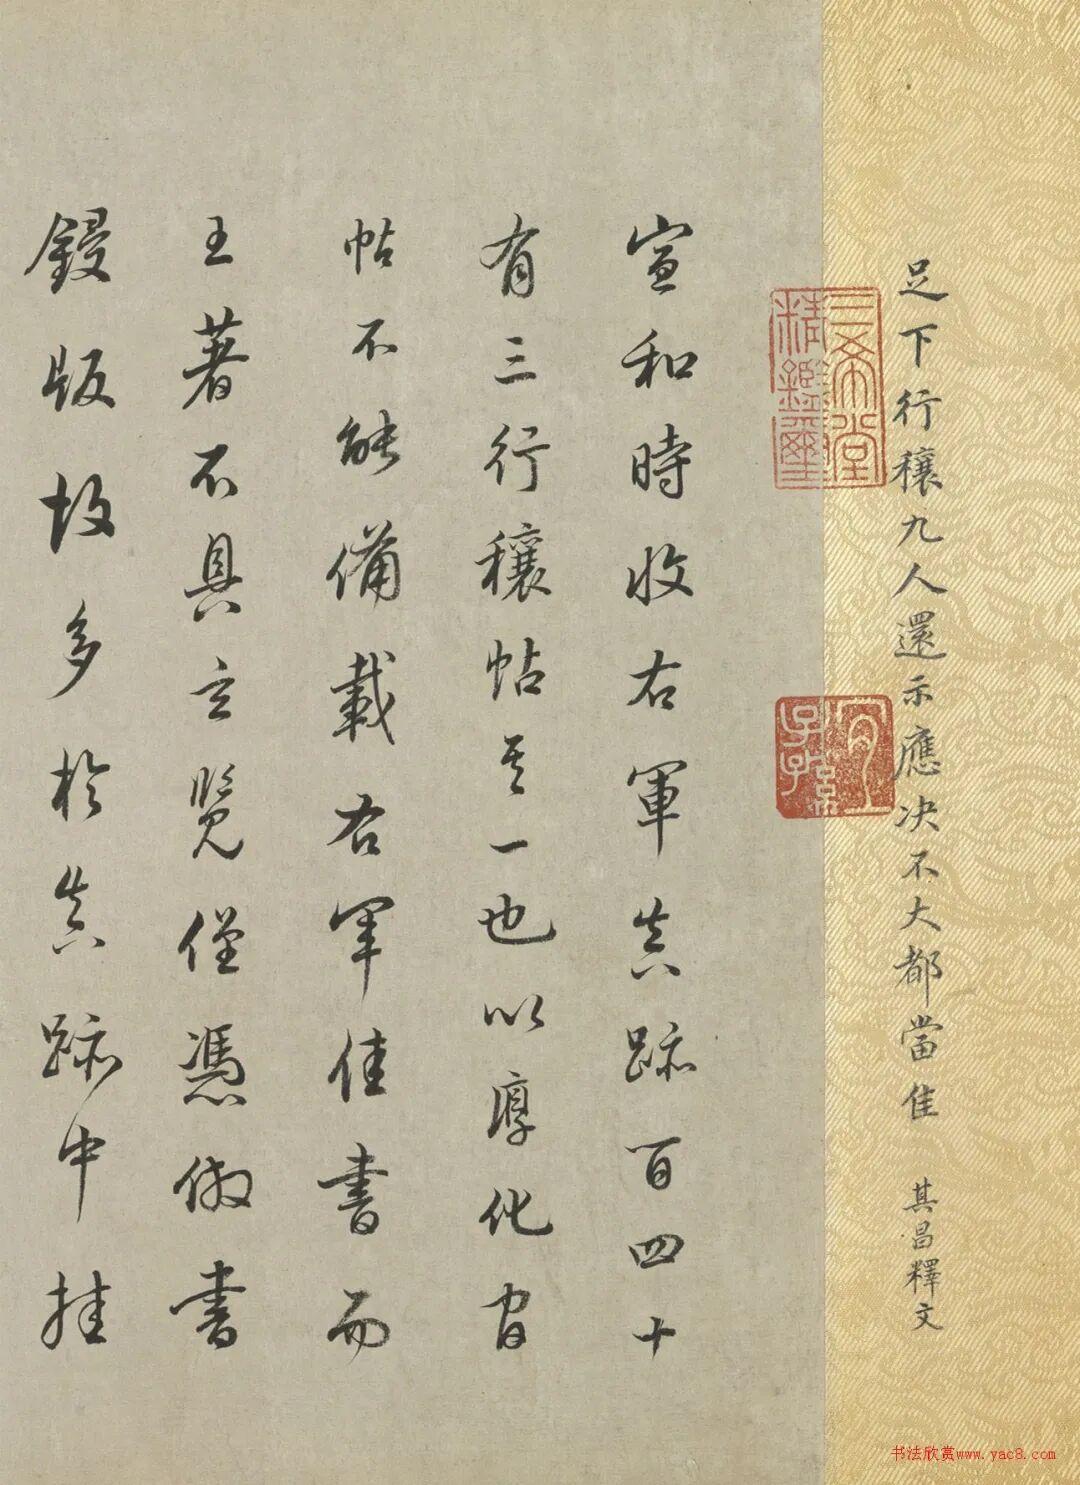 足下行穰九人還示應决不大都當佳 其昌釋文
三希堂
精鑑璽
宜
子孫
宣和時收右軍真跡百四十
有三行穰帖其一也以淳化官
帖不能備載右軍佳書而
王著不具玄覽僅憑倣書
鋟版故多於真跡中挂
书法欣赏www.yac8.com